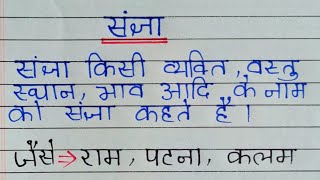 संज्ञा
संज्ञा किसी व्यक्ति, वस्तु
स्थान, भाव आदि के नाम
को संज्ञा कहते हैं।
जैसे⇒राम, पटना, कलम